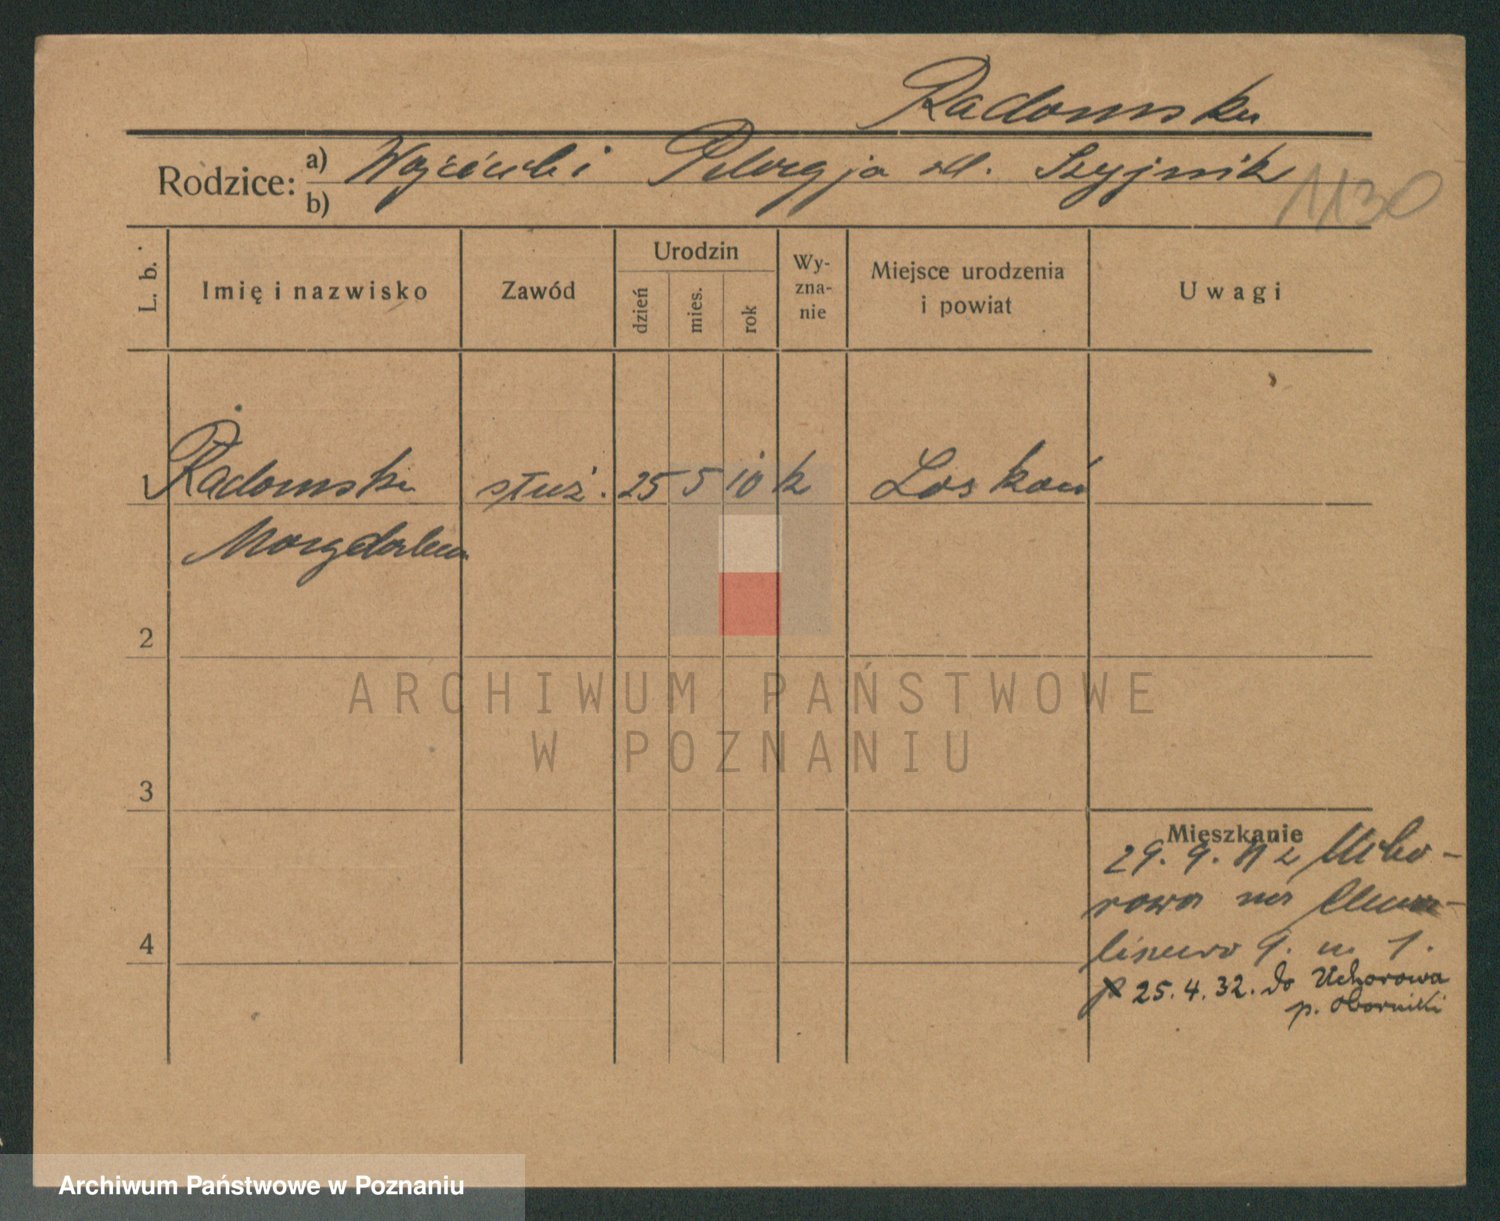 Radomska
Rodzice: a) Wojciech i Pelagja zd. Szyjnik
b)
1130
L. b.
Imię i nazwisko
Zawód
Urodzin
dzień
mies.
rok
Wy-
zna-
nie
Miejsce urodzenia
i powiat
Uwagi
1 Radomska służ. 25 5 10 k Loskoń
Magdalena
2
3
4
Mieszkanie
29. 9. 31 z Ucho-
rowa na
9. m. 1.
25. 4. 32. do Uchorowa
p. Oborniki
ARCHIWUM PAŃSTWOWE
W POZNANIU
Archiwum Państwowe w Poznaniu